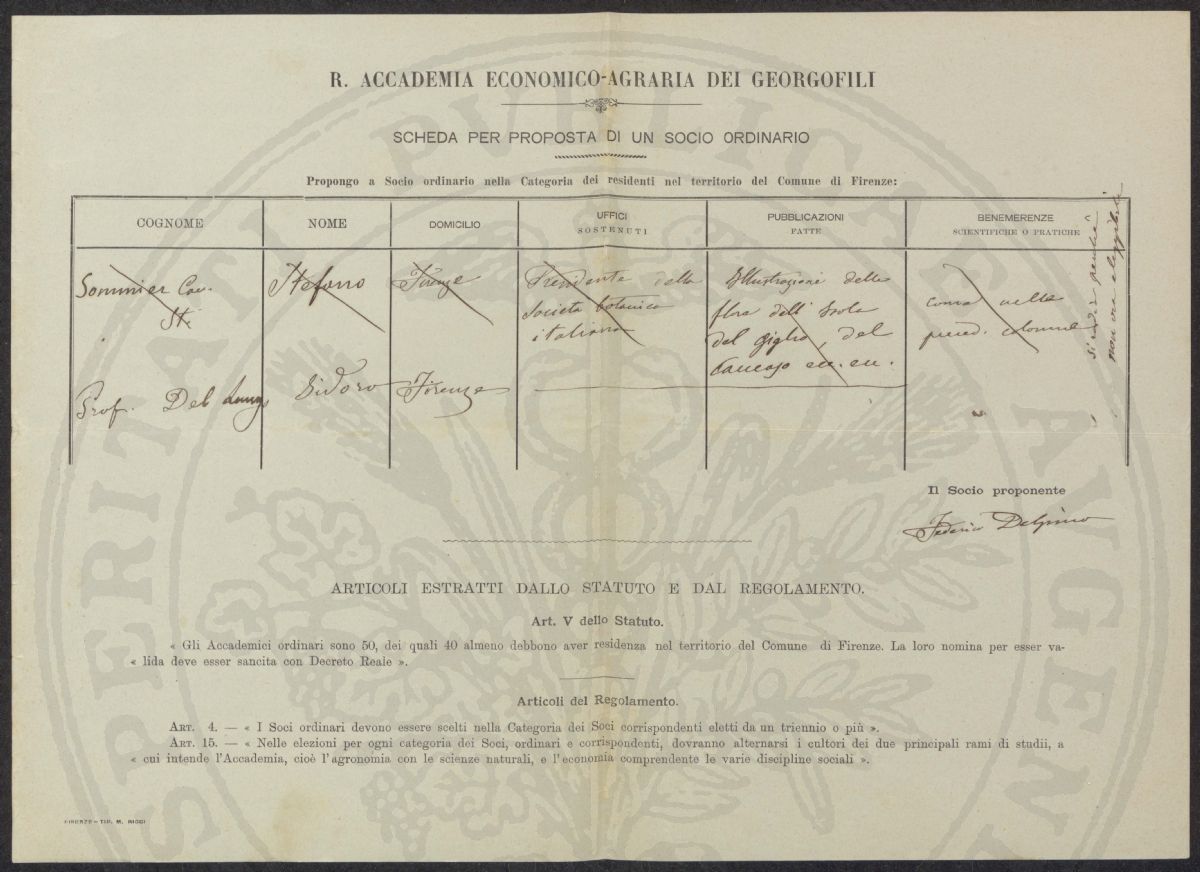 R. ACCADEMIA ECONOMICO-AGRARIA DEI GEORGOFILI
SCHEDA PER PROPOSTA DI UN SOCIO ORDINARIO
Propongo a Socio ordinario nella Categoria dei residenti nel territorio del Comune di Firenze:
COGNOME NOME DOMICILIO UFFICI SOSTENUTI PUBBLICAZIONI FATTE BENEMERENZE SCIENTIFICHE O PRATICHE
Sommier Cav. Stefano Firenze Presidente della Illustrazione della come nelle
St. Società botanica flora dell' Isola preced. colonne
italiana del Giglio, del
Caucaso ec. ec.
Prof. Del Lungo Isidoro Firenze
non era eleggibile
Il Socio proponente
Federico Delpino
ARTICOLI ESTRATTI DALLO STATUTO E DAL REGOLAMENTO.
Art. V dello Statuto.
« Gli Accademici ordinari sono 50, dei quali 40 almeno debbono aver residenza nel territorio del Comune di Firenze. La loro nomina per esser va-
« lida deve esser sancita con Decreto Reale ».
Articoli del Regolamento.
ART. 4. — « I Soci ordinari devono essere scelti nella Categoria dei Soci corrispondenti eletti da un triennio o più ».
ART. 15. — « Nelle elezioni per ogni categoria dei Soci, ordinari e corrispondenti, dovranno alternarsi i cultori dei due principali rami di studii, a
« cui intende l'Accademia, cioè l'agronomia con le scienze naturali, e l'economia comprendente le varie discipline sociali ».
FIRENZE - TIP. M. RICCI
PROSPERITATI PUBLICAE AVGENDAE